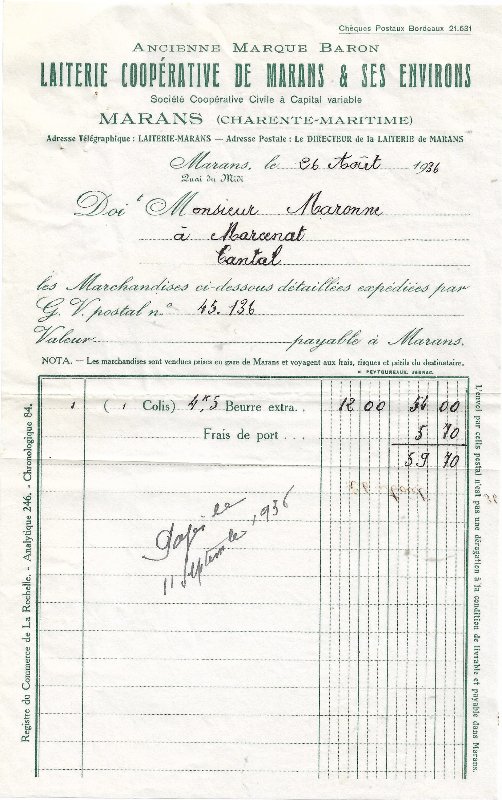 Chèques Postaux Bordeaux 21.531
ANCIENNE MARQUE BARON
LAITERIE COOPÉRATIVE DE MARANS & SES ENVIRONS
Société Coopérative Civile à Capital variable
MARANS (CHARENTE-MARITIME)
Adresse Télégraphique : LAITERIE-MARANS — Adresse Postale : Le DIRECTEUR de la LAITERIE de MARANS
Marans, le 26 Août 1936
Quai du Midi
Doit Monsieur Maronne
à Marcenat
Cantal
les Marchandises ci-dessous détaillées expédiées par
G. V. postal n.° 45.136
Valeur payable à Marans.
NOTA. — Les marchandises sont vendues prises en gare de Marans et voyagent aux frais, risques et périls du destinataire.
PEYTOUREAUX, JARNAC.
1 ( 1 Colis) 4k,5 Beurre extra.. 12 00 54 00
Frais de port ... 5 70
59 70
Payé le
11 septembre 1936
Registre du Commerce de La Rochelle. - Analytique 246. - Chronologique 84.
L'envoi par colis postal n'est pas une dérogation à la condition de livrable et payable dans Marans.